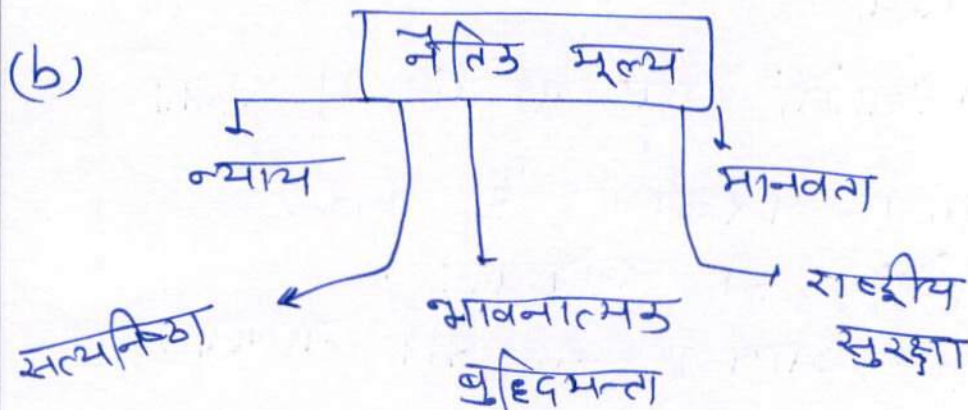 (b)
नैतिक मूल्य
न्याय
मानवता
सत्यनिष्ठा
भावनात्मक
बुद्धिमत्ता
राष्ट्रीय
सुरक्षा